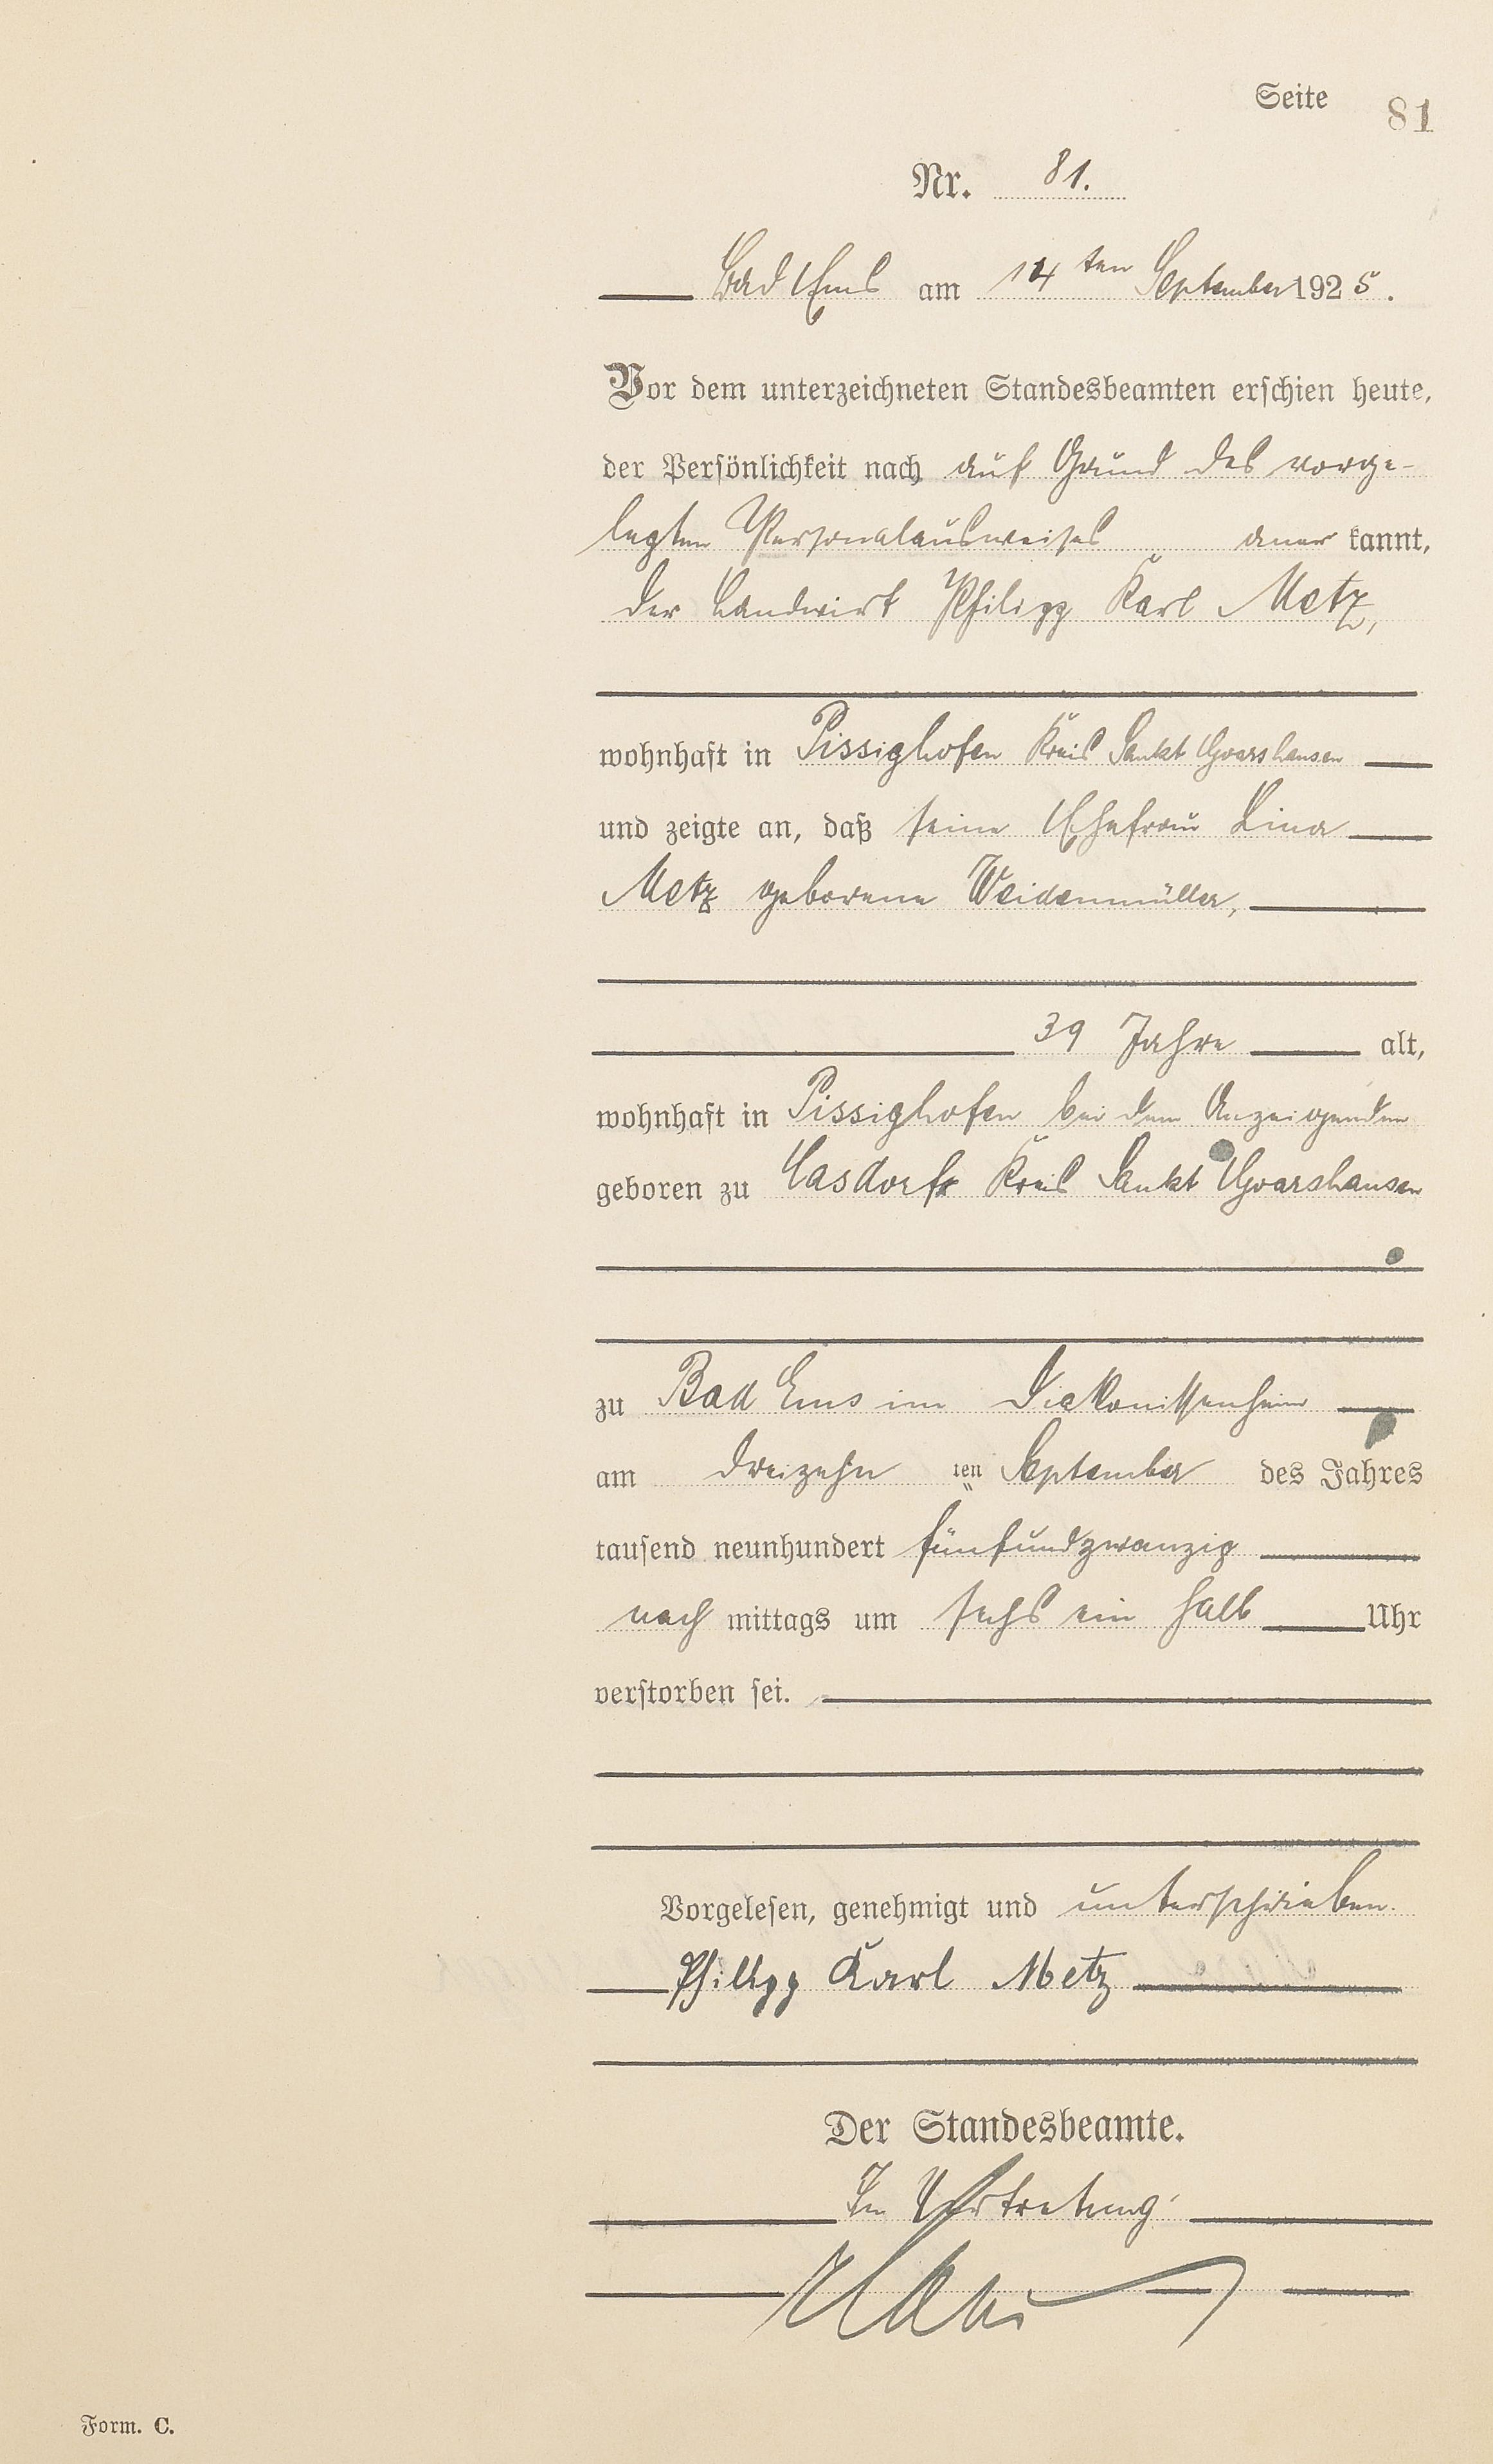 Seite 81
Nr. 81.
Bad Ems am 14ten September 1925.
Vor dem unterzeichneten Standesbeamten erschien heute,
der Persönlichkeit nach auf Grund des vorge-
legten Personalausweises anerkannt,
der Landwirt Philipp Karl Metz,
wohnhaft in Pissighofen Kreis Sankt Goarshausen
und zeigte an, daß seine Ehefrau Lina
Metz geborene Weidenmüller,
39 Jahre alt,
wohnhaft in Pissighofen bei dem Anzeigenden
geboren zu Casdorf Kreis Sankt Goarshausen
zu Bad Ems im Diakonissenheim
am dreizehnten September des Jahres
tausend neunhundert fünfundzwanzig
nachmittags um sechs ein halb Uhr
verstorben sei.
Vorgelesen, genehmigt und unterschrieben.
Philipp Karl Metz
Der Standesbeamte.
In Vertretung
Form. C.